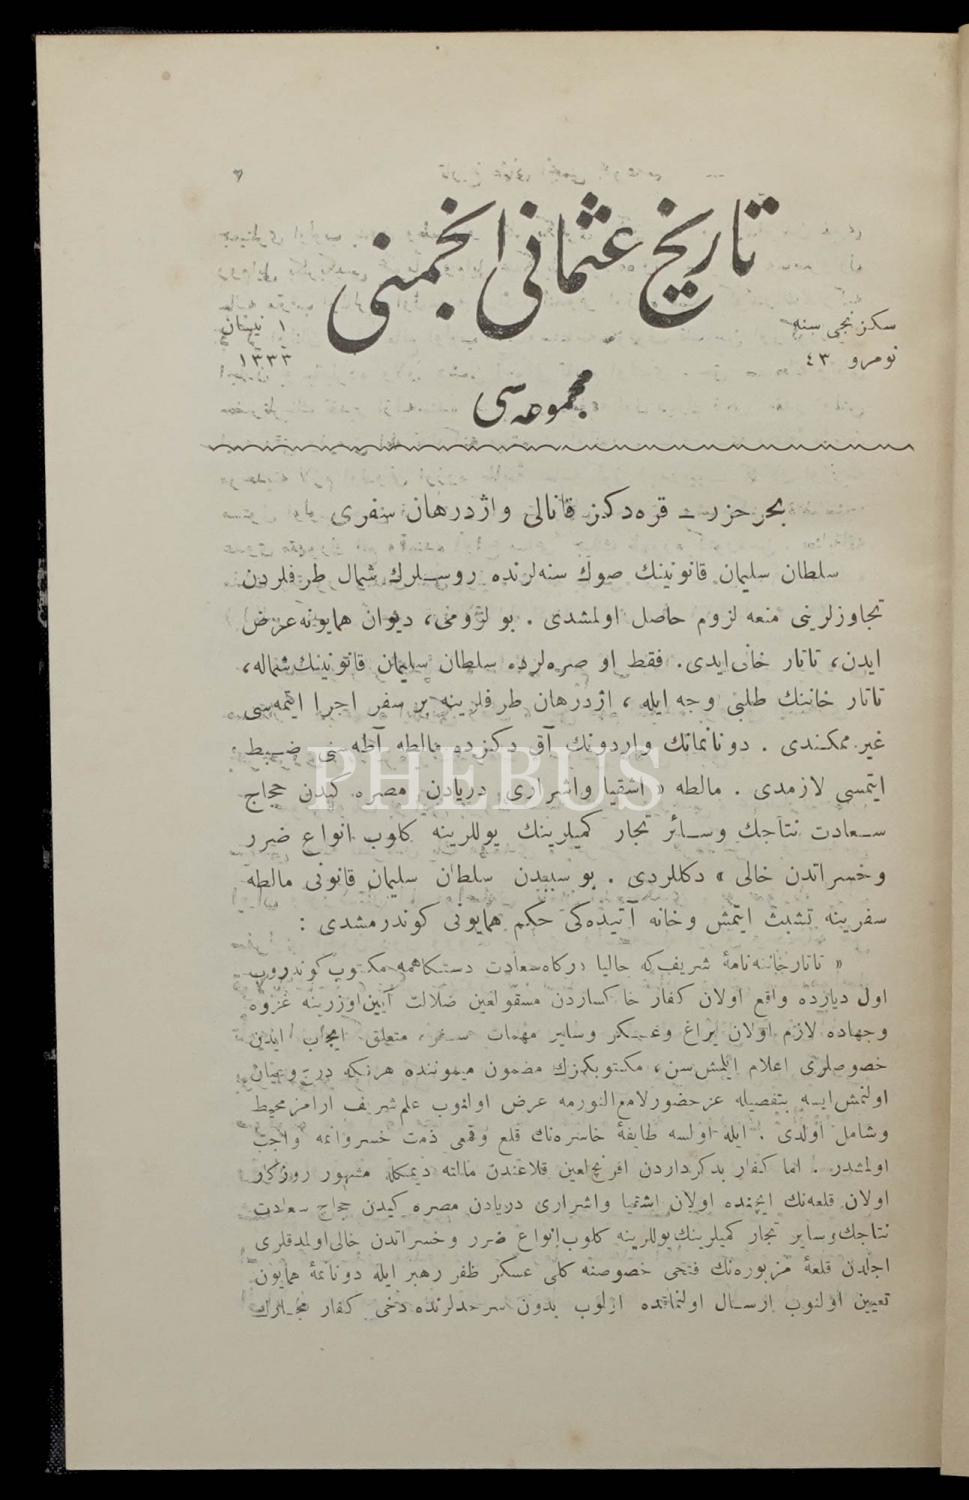 تاریخ عثمانی انجمنی
سكزنجی سنه
نومرو ٤٣
١ نیسان
١٣٣٣
مجموعه سی
بحر حزر ــ قره دكز قانالی و اژدرهان سفری
سلطان سلیمان قانونینك صوك سنه لرنده روسلرك شمال طرفلردن
تجاوزلرینی منعه لزوم حاصل اولمشدی . بو لزومی، دیوان همایونه عرض
ایدن، تاتار خانی ایدی. فقط او صره لرده سلطان سلیمان قانونینك شماله،
تاتار خاننك طلبی وجه ایله ، اژدرهان طرفلرینه بر سفر اجرا ایتمه سی
غیر ممكندی . دونانمانك و اردونك آق دكزده مالطه آطه سنی ضبط
ایتمسی لازمدی . مالطه « اشقیا و اشراری دریادن مصره كیدن حجاج
سعادت نتاجك وسائر تجار كمیلرینك یوللرینه كلوب انواع ضرر
وخسراتدن خالی » دكللردی . بو سببدن سلطان سلیمان قانونی مالطه
سفرینه تشبث ایتمش وخانه آتیده كی حكم همایونی كوندرمشدی :
« تاتارخاننه نامهٔ شریف كه حالیا دركاه سعادت دستكاهمه مكتوب كوندروب
اول دیارده واقع اولان كفار خاكساردن مسقو لعین ضلالت آیین اوزرینه غزوه
وجهاده لازم اولان یراغ وعسكر وسایر مهمات سفره متعلق ایجاب ایدن
خصوصلری اعلام ایلمش سن، مكتوبكزك مضمون میموننده هرنكه درج وبیان
اولنمش ایسه بتفصیله عز حضور لامع النورمه عرض اولنوب علم شریف ارامز محیط
وشامل اولدی . ایله اولسه طایفهٔ خاسره نك قلع وقمعی ذمت خسروانمه واجب
اولمشدر . اما كفار بدكرداردن افرنج لعین قلاعندن مالته دیمكله مشهور روزكار
اولان قلعه نك ایچنده اولان اشقیا واشراری دریادن مصره كیدن حجاج سعادت
نتاجك وسایر تجار كمیلرینك یوللرینه كلوب انواع ضرر وخسراتدن خالی اولمدقلری
اجلدن قلعهٔ مزبوره نك فتحی خصوصنه كلی عسكر ظفر رهبر ایله دونانمهٔ همایون
تعیین اولنوب ارسال اولنماقده اولوب بدون سرحدلرنده دخی كفار
PHEBUS